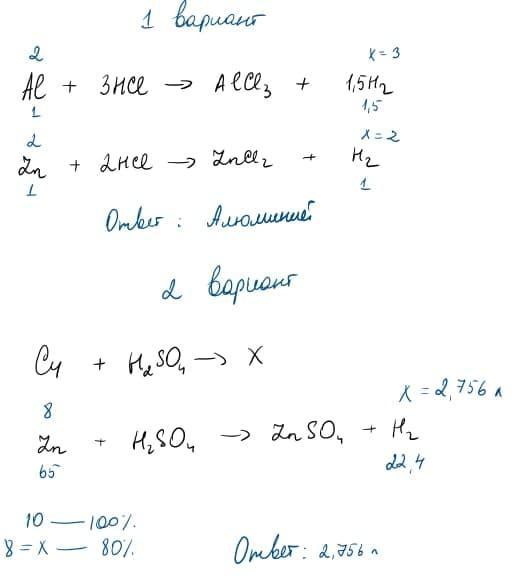 1 вариант
2 x = 3
Al + 3HCl → AlCl₃ + 1,5H₂
1 1,5
2 x = 2
Zn + 2HCl → ZnCl₂ + H₂
1 1
Ответ: Алюминий
2 вариант
Cu + H₂SO₄ → X
8 X = 2,756 л
Zn + H₂SO₄ → ZnSO₄ + H₂
65 22,4
10 — 100%.
8 = x — 80%
Ответ: 2,756 л